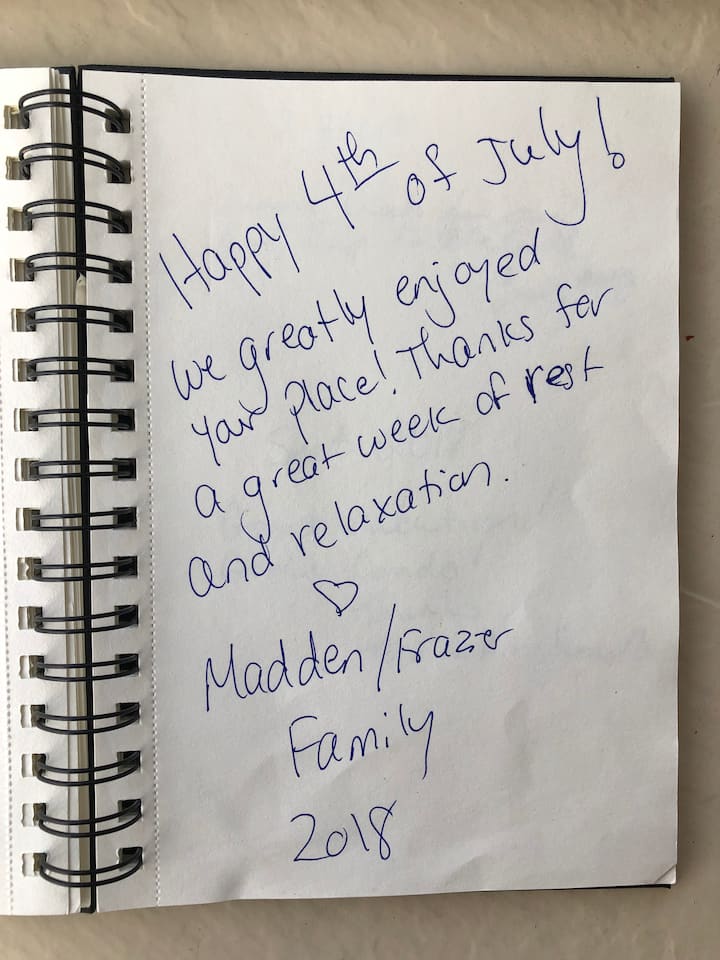 Happy 4th of July!
we greatly enjoyed
your place! Thanks for
a great week of rest
and relaxation.
♡
Madden/Frazier
Family
2018